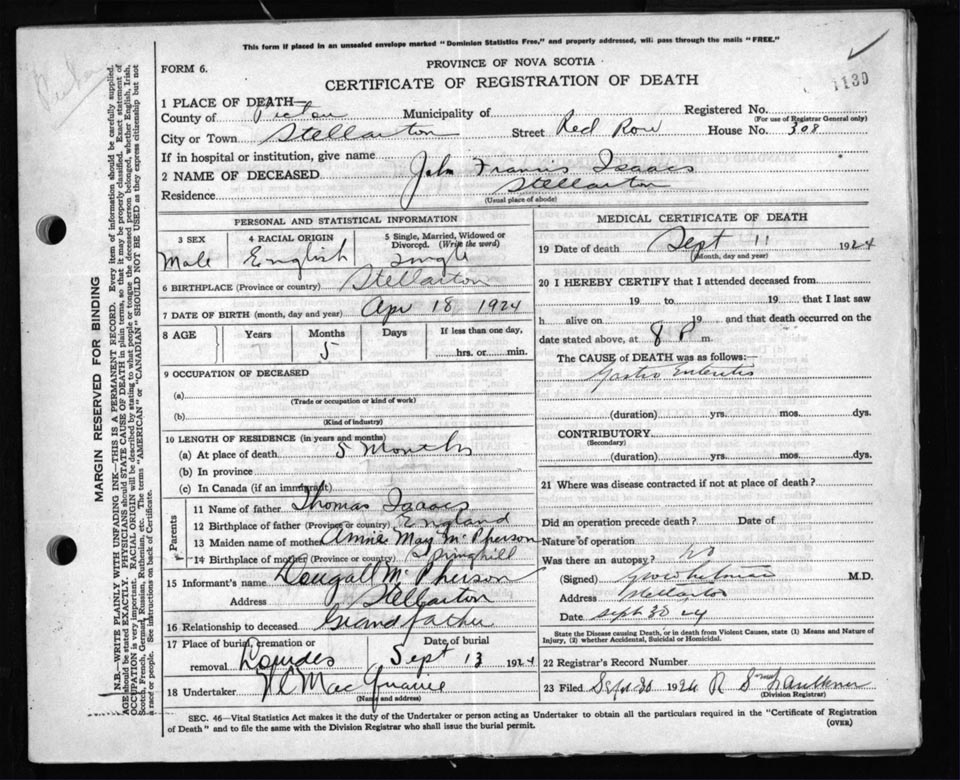 This form if placed in an unsealed envelope marked "Dominion Statistics Free," and properly addressed, will pass through the mails "FREE."
FORM 6.
PROVINCE OF NOVA SCOTIA
CERTIFICATE OF REGISTRATION OF DEATH
1130
1 PLACE OF DEATH—
County of Pictou Municipality of Registered No.
(For use of Registrar General only)
City or Town Stellarton Street Red Row House No. 308
If in hospital or institution, give name
2 NAME OF DECEASED John Francis Isaacs
Residence Stellarton
(Usual place of abode)
PERSONAL AND STATISTICAL INFORMATION
3 SEX 4 RACIAL ORIGIN 5 Single, Married, Widowed or Divorced. (Write the word)
Male English Single
6 BIRTHPLACE (Province or country) Stellarton
7 DATE OF BIRTH (month, day and year) Apr 18 1924
8 AGE Years Months Days If less than one day,
5 hrs. or min.
9 OCCUPATION OF DECEASED
(a)
(Trade or occupation or kind of work)
(b)
(Kind of industry)
10 LENGTH OF RESIDENCE (in years and months)
(a) At place of death 5 Months
(b) In province
(c) In Canada (if an immigrant)
Parents
11 Name of father Thomas Isaacs
12 Birthplace of father (Province or country) England
13 Maiden name of mother Annie May McPherson
14 Birthplace of mother (Province or country) Springhill
15 Informant's name Dougall McPherson
Address Stellarton
16 Relationship to deceased Grandfather
17 Place of burial, cremation or removal Lourdes Date of burial Sept 13 1924
18 Undertaker MacQuarrie
(Name and address)
MEDICAL CERTIFICATE OF DEATH
19 Date of death Sept 11 1924
(Month, day and year)
20 I HEREBY CERTIFY that I attended deceased from
19 to 19 that I last saw
h alive on 19 and that death occurred on the
date stated above, at 8 P m.
The CAUSE of DEATH was as follows:—
Gastro Enteritis
(duration) yrs. mos. dys.
CONTRIBUTORY
(Secondary)
(duration) yrs. mos. dys.
21 Where was disease contracted if not at place of death?
Did an operation precede death? Date of
Nature of operation
Was there an autopsy? no
(Signed) M.D.
Address Stellarton
Date Sept 30 24
State the Disease causing Death, or in death from Violent Causes, state (1) Means and Nature of
Injury, (2) whether Accidental, Suicidal or Homicidal.
22 Registrar's Record Number
23 Filed Sept 30 1924 R S Faulkner
(Division Registrar)
SEC. 46—Vital Statistics Act makes it the duty of the Undertaker or person acting as Undertaker to obtain all the particulars required in the "Certificate of Registration
of Death" and to file the same with the Division Registrar who shall issue the burial permit.
(OVER)
MARGIN RESERVED FOR BINDING
N.B.—WRITE PLAINLY WITH UNFADING INK—THIS IS A PERMANENT RECORD. Every item of information should be carefully supplied.
AGE should be stated EXACTLY. PHYSICIANS should STATE CAUSE OF DEATH in plain terms, so that it may be properly classified. Exact statement of
OCCUPATION is very important. RACIAL ORIGIN will be described by stating to what people or tongue the deceased person belonged, whether English, Irish,
Scotch, French, German, Russian, Ruthenian, etc. The terms "AMERICAN" or "CANADIAN" SHOULD NOT BE USED as they express citizenship but not
a race or people. See instructions on back of Certificate.